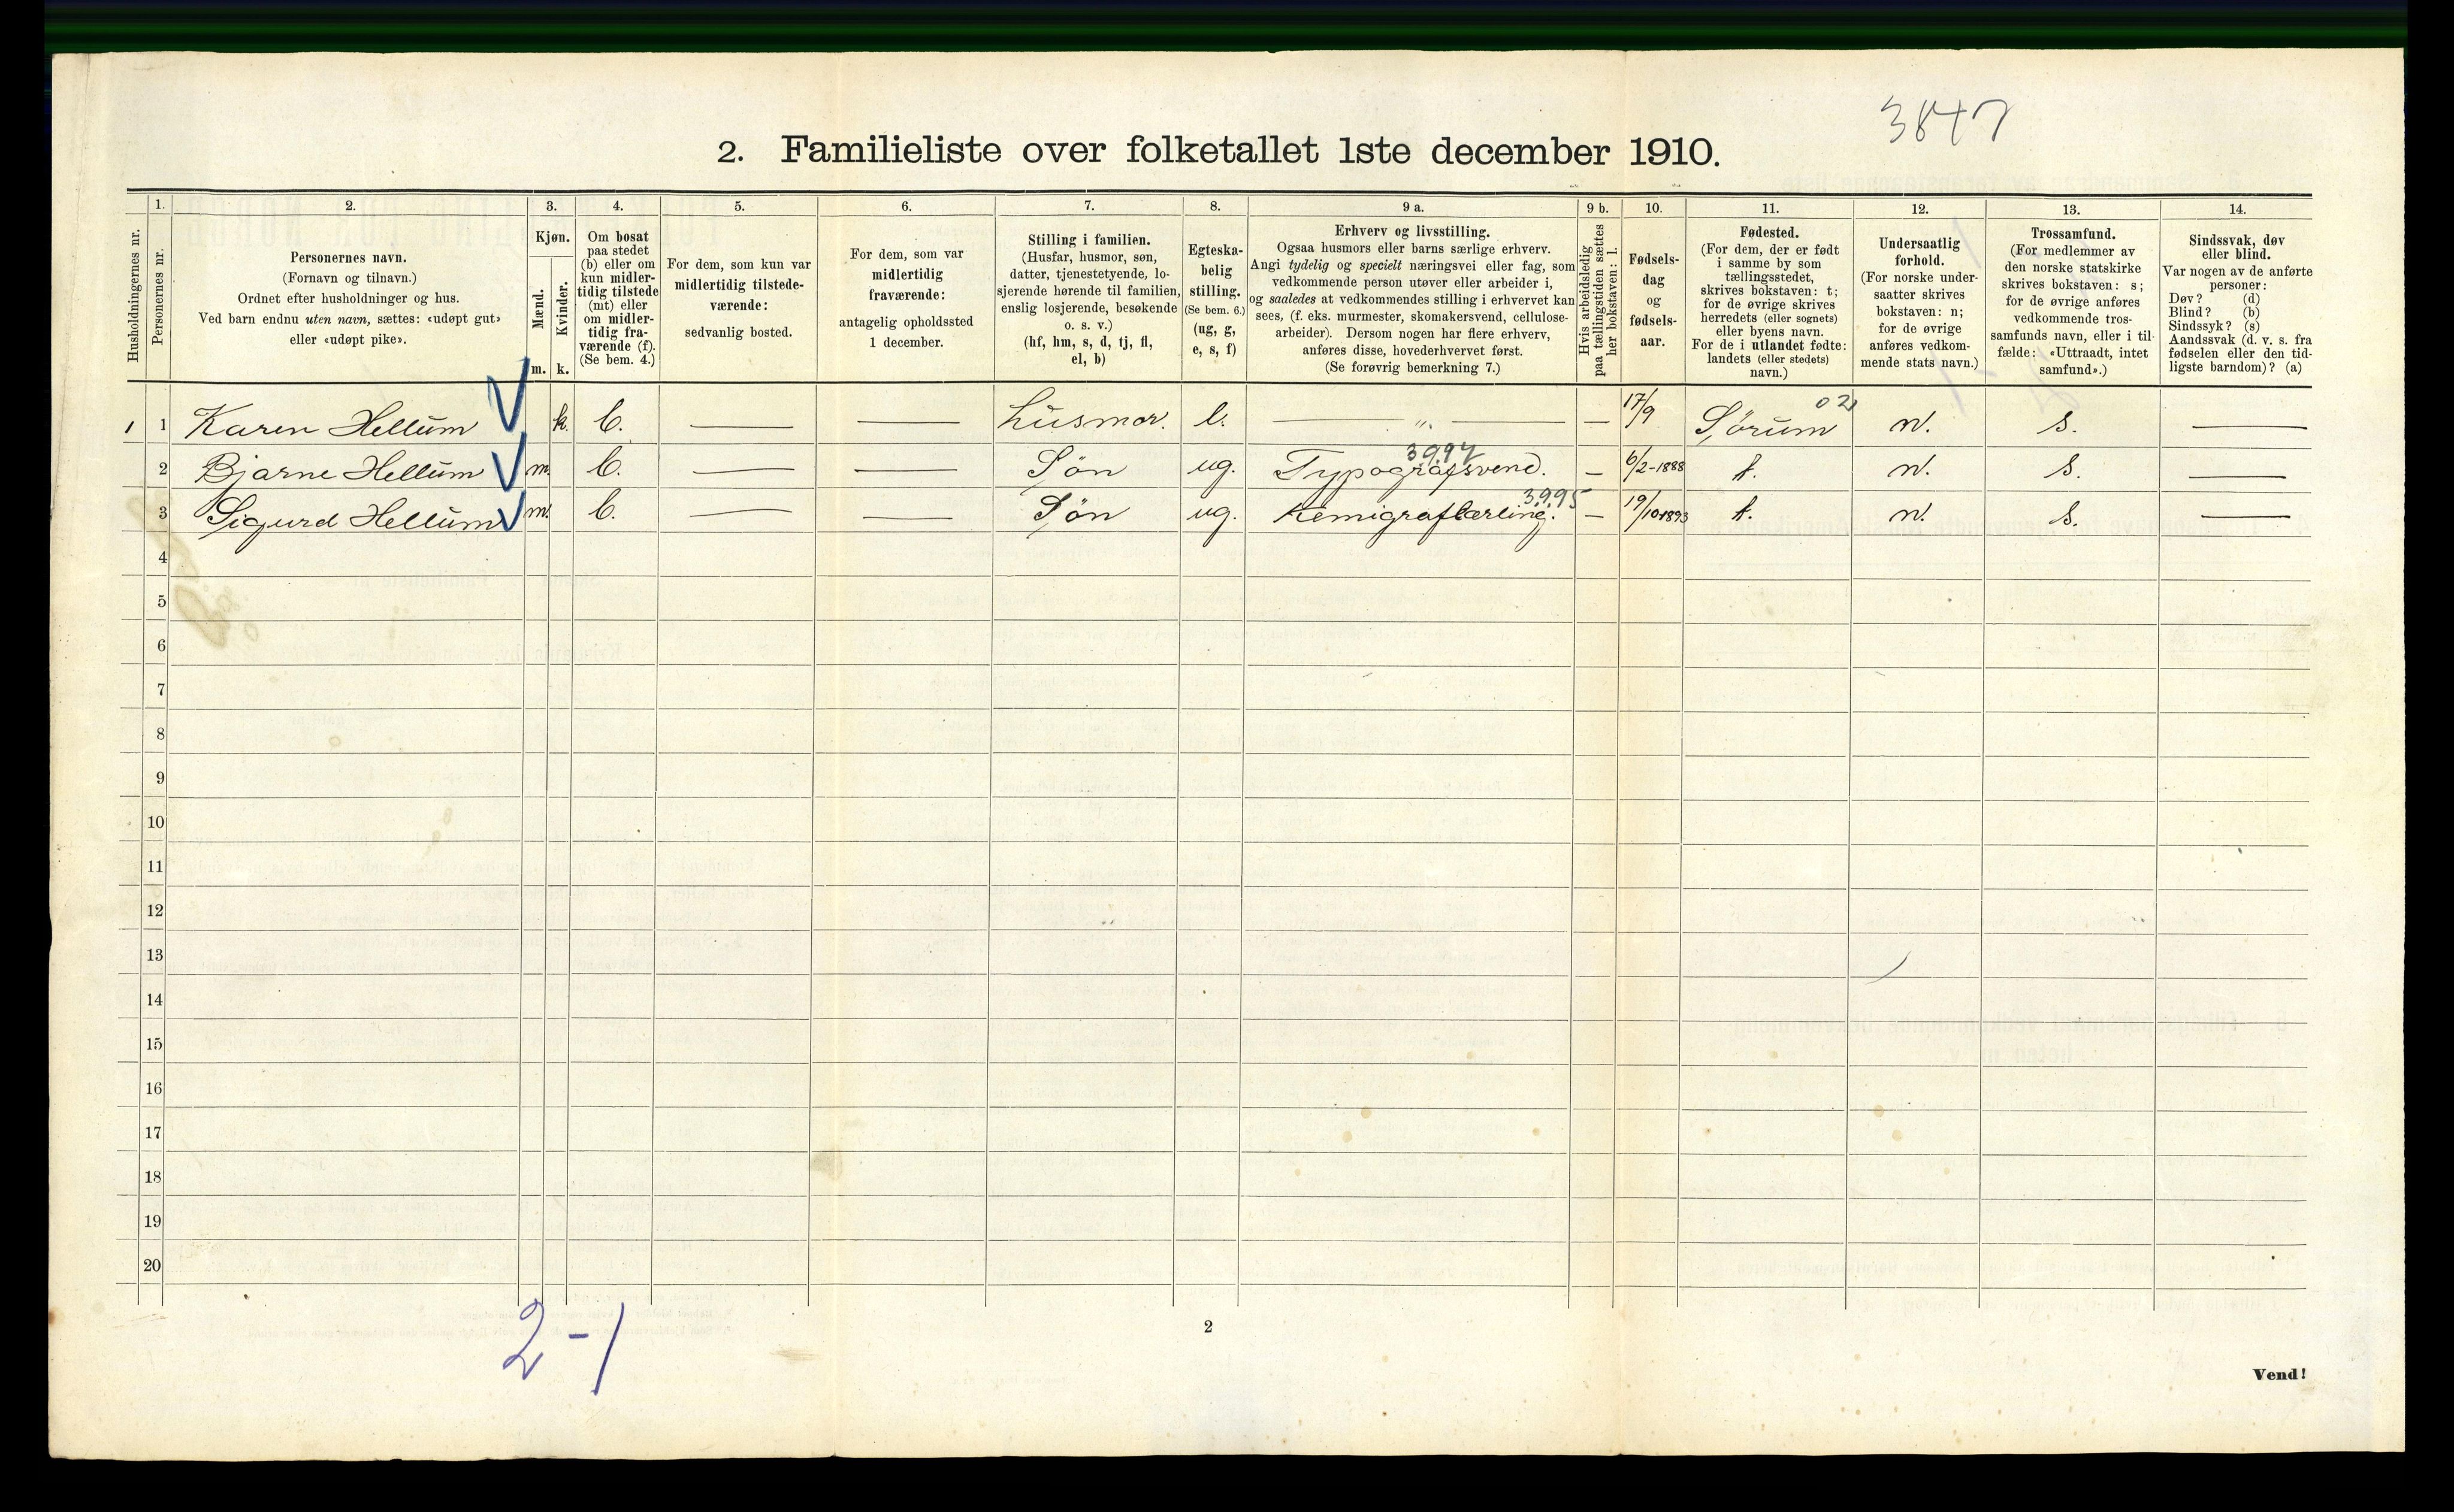 3847
2. Familieliste over folketallet 1ste december 1910.
Husholdningernes nr.
1.
Personernes nr.
2.
Personernes navn.
(Fornavn og tilnavn.)
Ordnet efter husholdninger og hus.
Ved barn endnu uten navn, sættes: «udøpt gut»
eller «udøpt pike».
3.
Kjøn.
Mænd.
Kvinder.
m. k.
4.
Om bosat
paa stedet
(b) eller om
kun midler-
tidig tilstede
(mt) eller
om midler-
tidig fra-
værende (f).
(Se bem. 4.)
5.
For dem, som kun var
midlertidig tilstede-
værende:
sedvanlig bosted.
6.
For dem, som var
midlertidig
fraværende:
antagelig opholdssted
1 december.
7.
Stilling i familien.
(Husfar, husmor, søn,
datter, tjenestetyende, lo-
sjerende hørende til familien,
enslig losjerende, besøkende
o. s. v.)
(hf, hm, s, d, tj, fl,
el, b)
8.
Egteska-
belig
stilling.
(Se bem. 6.)
(ug, g,
e, s, f)
9 a.
Erhverv og livsstilling.
Ogsaa husmors eller barns særlige erhverv.
Angi tydelig og specielt næringsvei eller fag, som
vedkommende person utøver eller arbeider i,
og saaledes at vedkommendes stilling i erhvervet kan
sees, (f. eks. murmester, skomakersvend, cellulose-
arbeider). Dersom nogen har flere erhverv,
anføres disse, hovederhvervet først.
(Se forøvrig bemerkning 7.)
9 b.
Hvis arbeidsledig
paa tællingstiden sættes
her bokstaven: l.
10.
Fødsels-
dag
og
fødsels-
aar.
11.
Fødested.
(For dem, der er født
i samme by som
tællingsstedet,
skrives bokstaven: t;
for de øvrige skrives
herredets (eller sognets)
eller byens navn.
For de i utlandet fødte:
landets (eller stedets)
navn.)
12.
Undersaatlig
forhold.
(For norske under-
saatter skrives
bokstaven: n;
for de øvrige
anføres vedkom-
mende stats navn.)
13.
Trossamfund.
(For medlemmer av
den norske statskirke
skrives bokstaven: s;
for de øvrige anføres
vedkommende tros-
samfunds navn, eller i til-
fælde: «Uttraadt, intet
samfund».)
14.
Sindssvak, døv
eller blind.
Var nogen av de anførte
personer:
Døv? (d)
Blind? (b)
Sindssyk? (s)
Aandssvak (d. v. s. fra
fødselen eller den tid-
ligste barndom)? (a)
1 1 Karen Hellum k. b. — — husmor. e. — „ — — 17/9 Sørum 02 n. s. —
2 Bjarne Hellum m. b. — — Søn ug. Typografsvend. 3994 — 6/2-1888 t. n. s. —
3 Sigurd Hellum m. b. — — Søn ug. Kemigraflærling. 3995 — 19/10-1893 t. n. s. —
4
5
6
7
8
9
10
11
12
13
14
15
16
17
18
19
20
2-1
2
Vend!